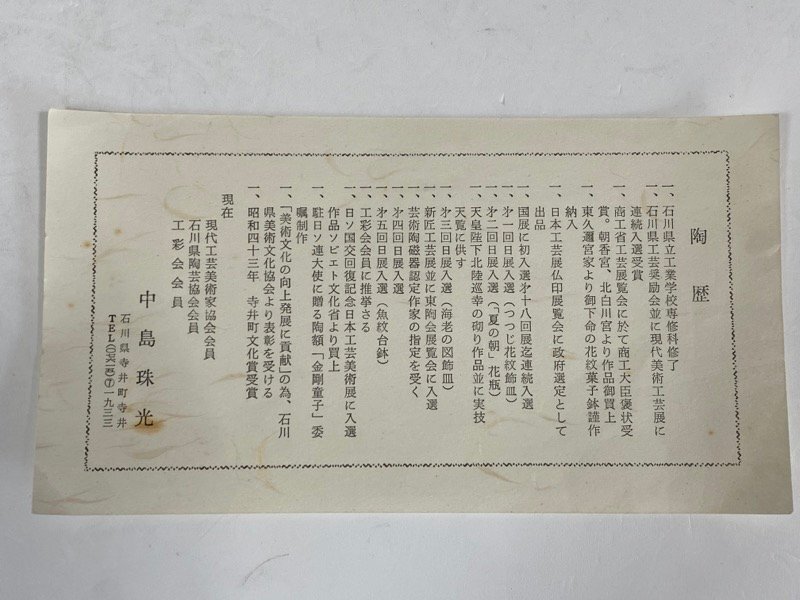 陶歴
一、石川県立工業学校専修科修了
一、石川県工芸奨励会並に現代美術工芸展に
連続入選受賞
一、商工省工芸展覧会に於て商工大臣褒状受
賞。朝香宮、北白川宮より作品御買上
一、東久邇宮家より御下命の花紋菓子鉢謹作
納入
一、日本工芸展仏印展覧会に政府選定として
出品
一、国展に初入選才十八回展迄連続入選
一、才一回日展入選（つつじ花紋飾皿）
一、才二回日展入選（「夏の朝」花瓶）
一、天皇陛下北陸巡幸の砌り作品並に実技
天覧に供す
一、才三回日展入選（海老の図飾皿）
一、新匠工芸展並に東陶会展覧会に入選
一、芸術陶磁器認定作家の指定を受く
一、才四回日展入選
一、才五回日展入選（魚紋台鉢）
一、工彩会会員に推挙さる
一、日ソ国交回復記念日本工芸美術展に入選
作品ソビエト文化省より買上
一、駐日ソ連大使に贈る陶額「金剛童子」委
嘱制作
一、「美術文化の向上発展に貢献」の為、石川
県美術文化協会より表彰を受ける
一、昭和四十三年 寺井町文化賞受賞
現在
現代工芸美術家協会会員
石川県陶芸協会会員
工彩会会員
中島珠光
石川県寺井町寺井
TEL 一九三三